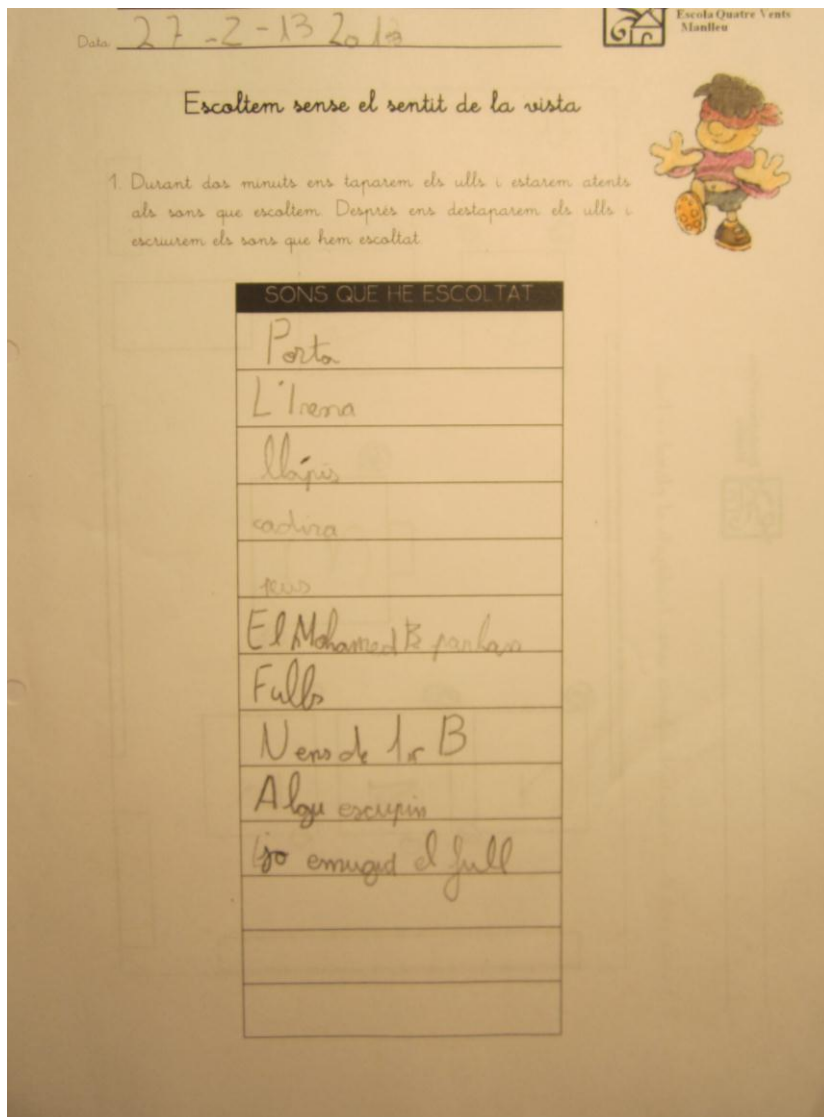 Escola Quatre Vents
Manlleu
Data 27-2-13 2013
Escoltem sense el sentit de la vista
1. Durant dos minuts ens taparem els ulls i estarem atents
als sons que escoltem. Després ens destaparem els ulls i
escriurem els sons que hem escoltat.
SONS QUE HE ESCOLTAT
Porta
L'Irena
llàpis
cadira
peus
El Mohamed B parlan
Fulls
Nens de 1r B
Algu escupin
jo emugid el full